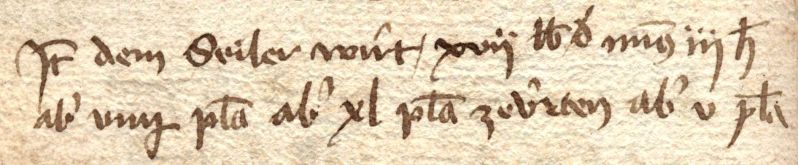 Jt dem Seiler wirt / xvii lb d mins iii h
ab viiij pfa ab xl pfa zeurten ab v pfa